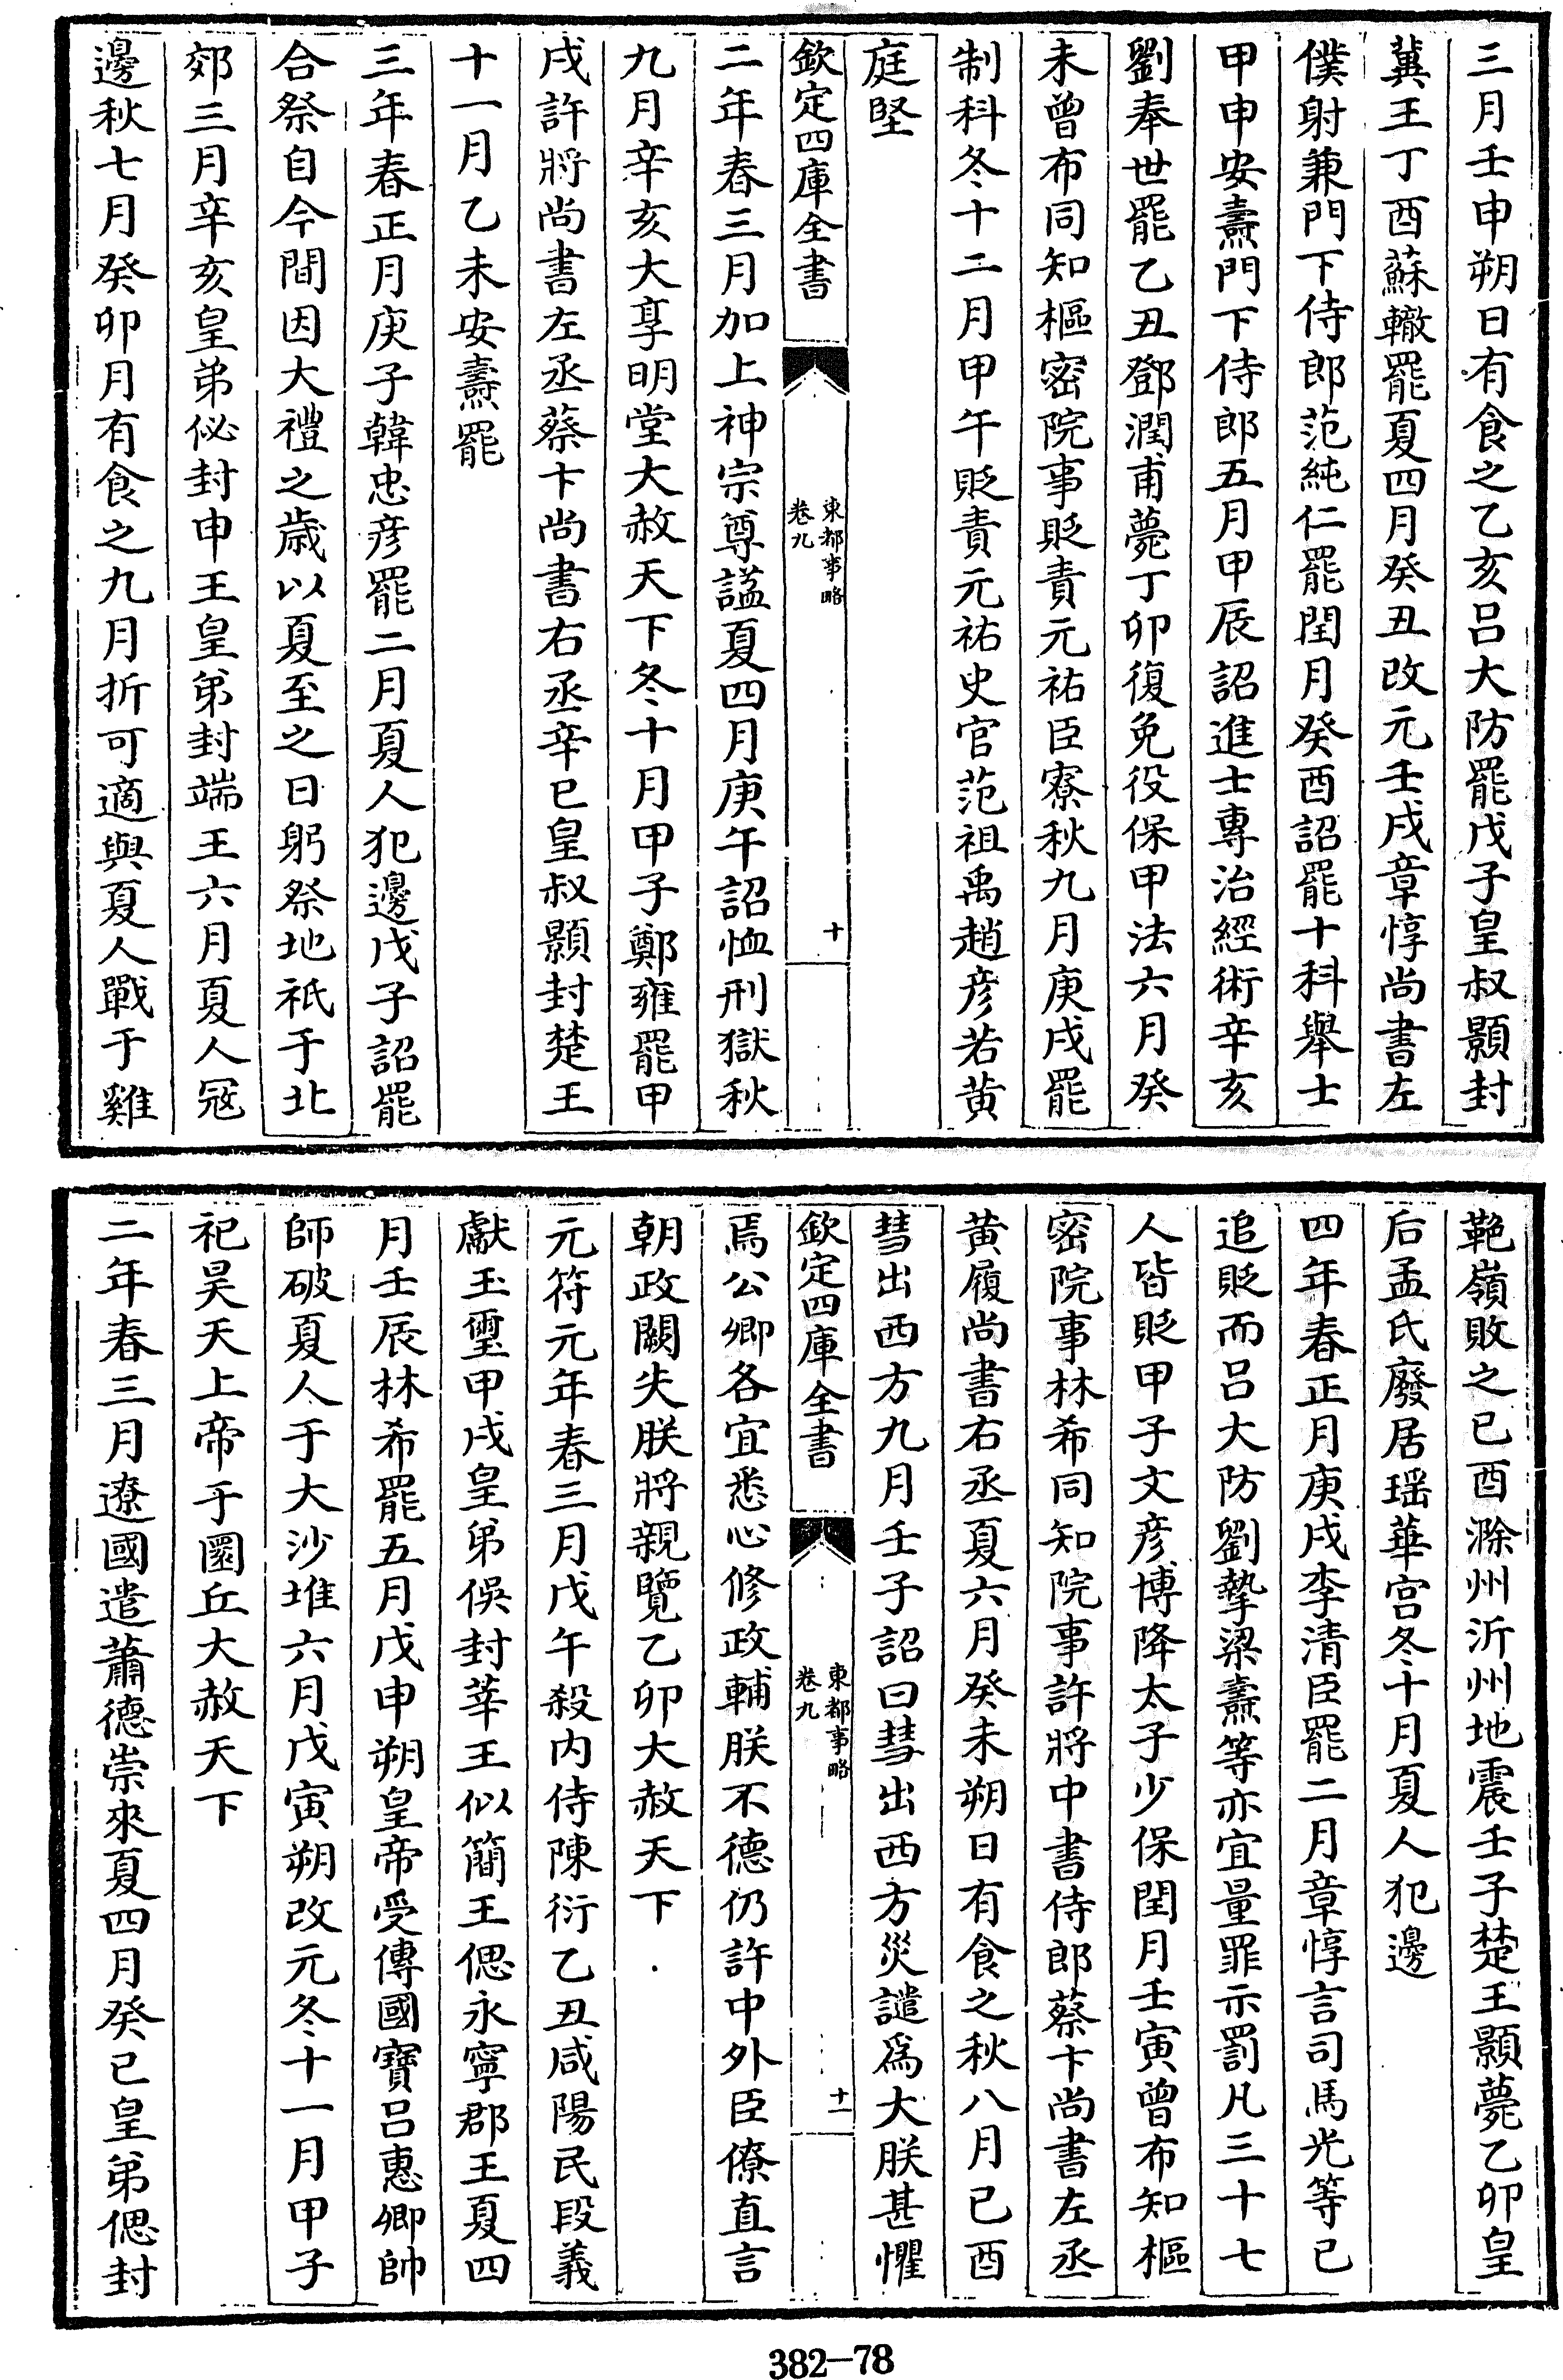 三月壬申朔日有食之乙亥呂大防罷戊子皇叔顥封
冀王丁酉蘇轍罷夏四月癸丑改元壬戌章惇尚書左
僕射兼門下侍郎范純仁罷閏月癸酉詔罷十科舉士
甲申安燾門下侍郎五月甲辰詔進士專治經術辛亥
劉奉世罷乙丑鄧潤甫薨丁卯復免役保甲法六月癸
未曾布同知樞密院事貶責元祐臣寮秋九月庚戌罷
制科冬十二月甲午貶責元祐史官范祖禹趙彦若黄
庭堅
欽定四庫全書
東都事略
卷九
十
二年春三月加上神宗尊諡夏四月庚午詔恤刑獄秋
九月辛亥大享明堂大赦天下冬十月甲子鄭雍罷甲
戌許將尚書左丞蔡卞尚書右丞辛巳皇叔顥封楚王
十一月乙未安燾罷
三年春正月庚子韓忠彦罷二月夏人犯邊戊子詔罷
合祭自今間因大禮之歲以夏至之日躬祭地祇于北
郊三月辛亥皇弟佖封申王皇弟封端王六月夏人冦
邊秋七月癸卯月有食之九月折可適與夏人戰于雞
靶嶺敗之已酉滁州沂州地震壬子楚王顥薨乙卯皇
后孟氏廢居瑶華宫冬十月夏人犯邊
四年春正月庚戌李清臣罷二月章惇言司馬光等已
追貶而吕大防劉摯梁燾等亦宜量罪示罰凡三十七
人皆貶甲子文彦博降太子少保閏月壬寅曾布知樞
密院事林希同知院事許將中書侍郎蔡卞尚書左丞
黄履尚書右丞夏六月癸未朔日有食之秋八月已酉
彗出西方九月壬子詔曰彗出西方災譴爲大朕甚懼
欽定四庫全書
東都事略
卷九
十一
焉公卿各宜悉心修政輔朕不德仍許中外臣僚直言
朝政闕失朕將親覽乙卯大赦天下
元符元年春三月戊午殺内侍陳衍乙丑咸陽民段義
獻玉璽甲戌皇弟俁封莘王似簡王偲永寧郡王夏四
月壬辰林希罷五月戊申朔皇帝受傳國寶吕惠卿帥
師破夏人于大沙堆六月戊寅朔改元冬十一月甲子
祀昊天上帝于圜丘大赦天下
二年春三月遼國遣蕭德崇來夏四月癸已皇弟偲封
382—78